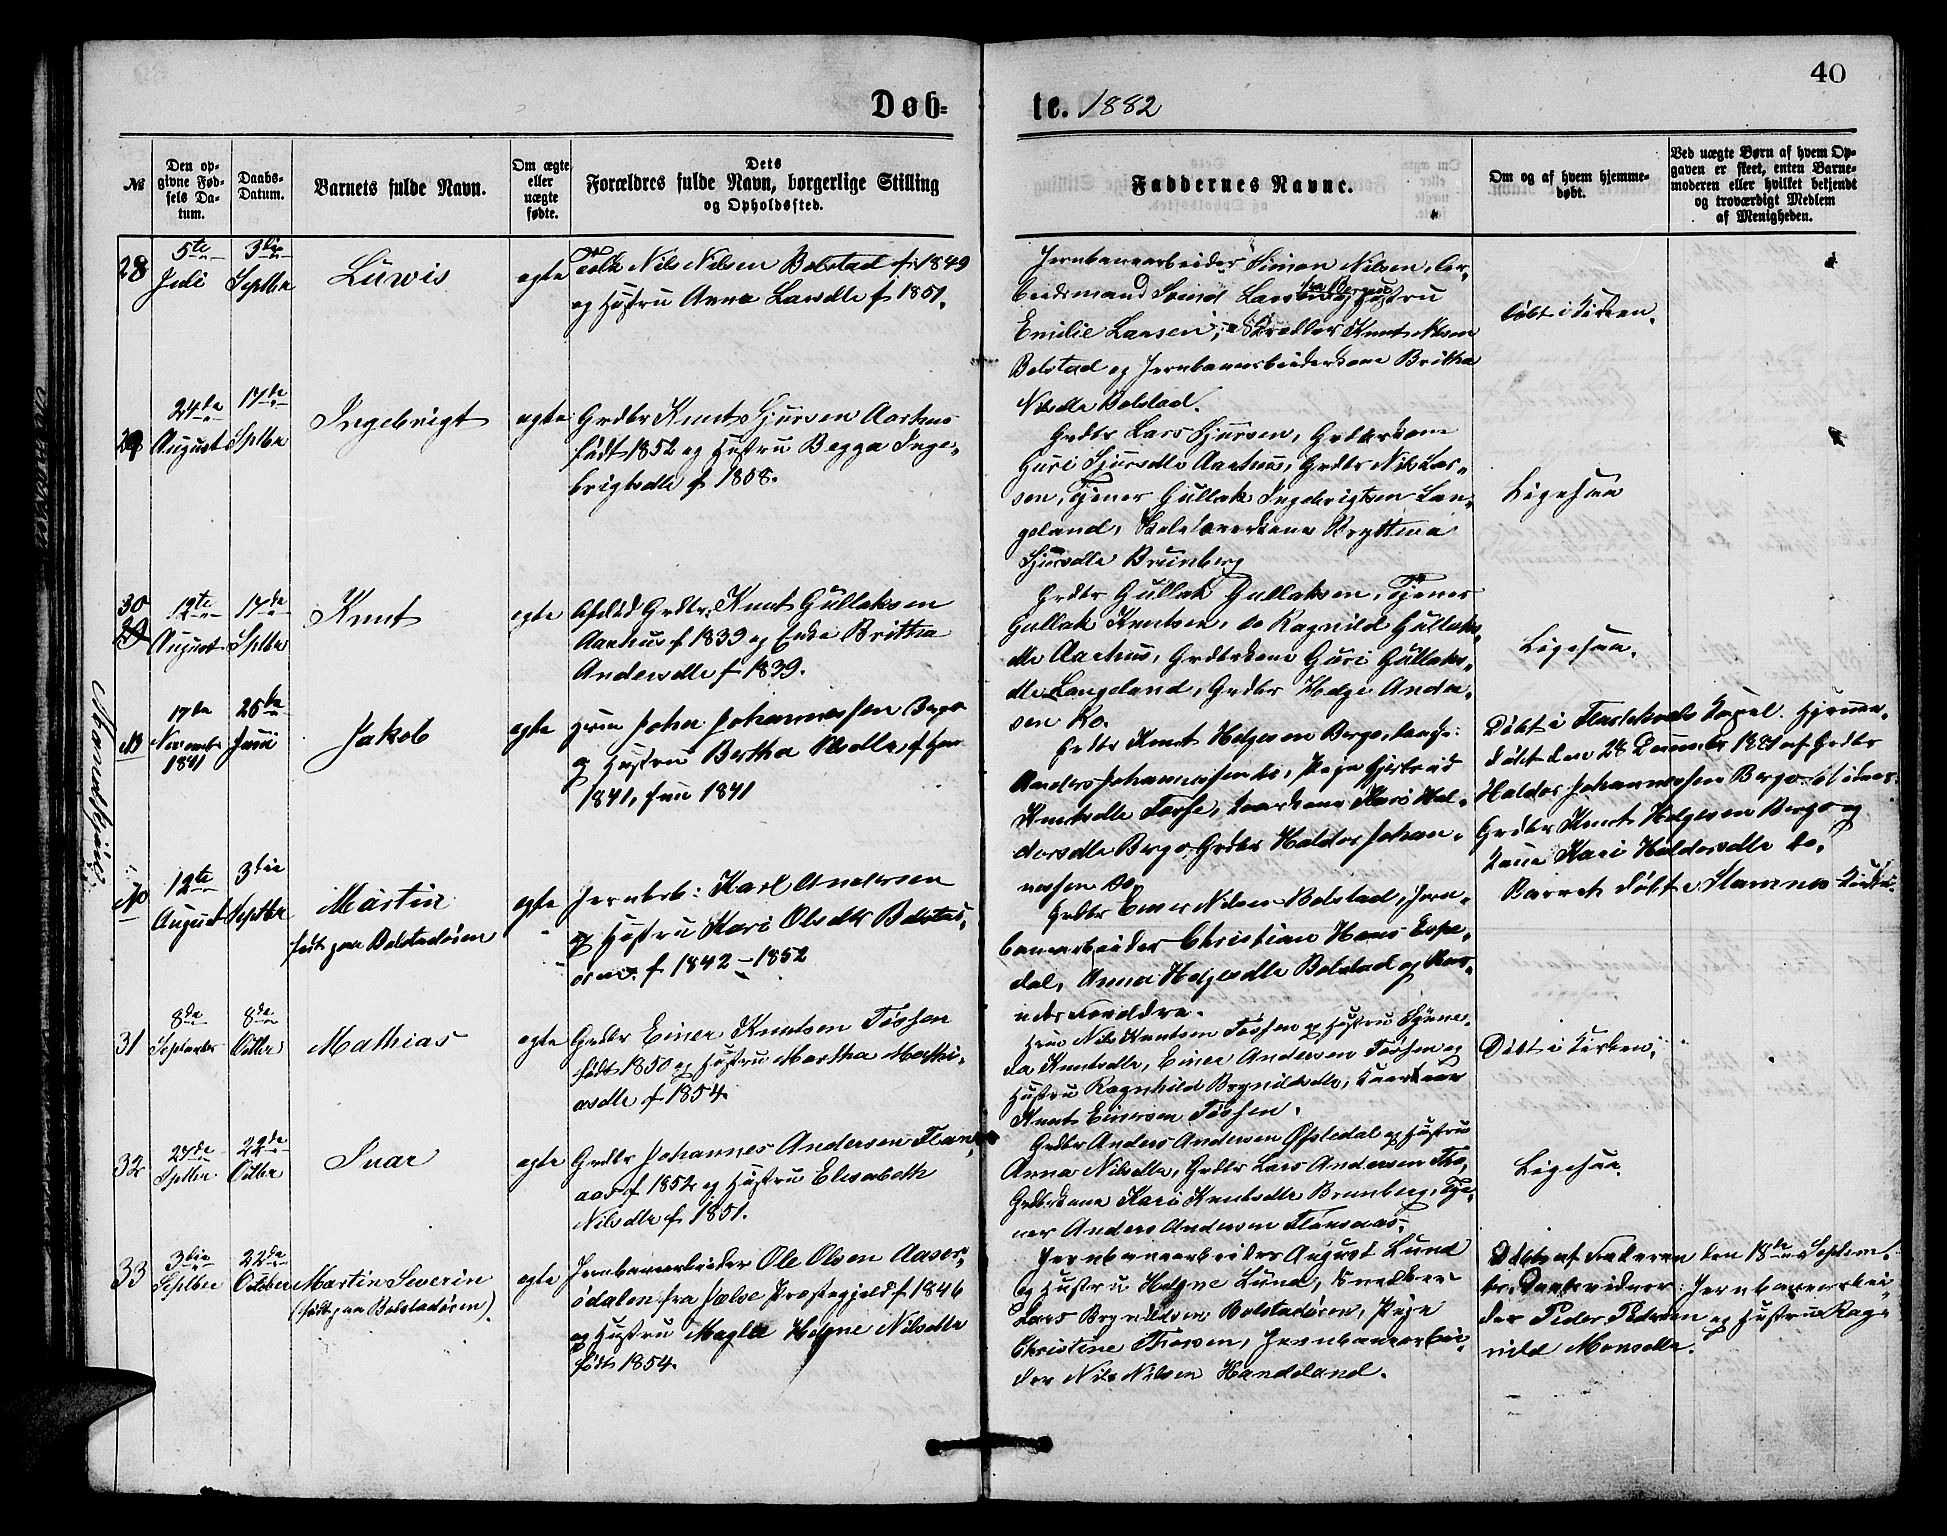 40
Døb-
te. 1882
№
Den op-
givne Fød-
sels Da-
tum.
Daabs-
Datum.
Barnets fulde Navn.
Om ægte
eller
uægte
fødte.
Dets
Forældres fulde Navn, borgerlige Stilling
og Opholdssted.
Faddernes Navne.
Om og af hvem hjemme-
døbt.
Ved uægte Børn af hvem Op-
gaven er skeet, enten Barne-
moderen eller hvilket bekjendt
og troværdigt Medlem
af Menigheden.
28
5te
Juli
3die
Septbr
Luwis
egte
Nils Nilsen Bolstad f. 1849
og Hustru Anna Larsdtr f 1851.
Jernbanearbeider Simon Nilsen, Ar-
beidsmand Svend Larsen og Hustru
fra Bergen
Emilie Larsen, Knut Nilsen
Bolstad og Jernbanearbeiderkone Britha
Nilsdtr Bolstad.
døbt i Kirken.
29
24de
August
17de
Sptbr
Ingebrigt
egte
Grdbr Knut Sjursen Aarhus
født 1852 og Hustru Begga Inge-
brigtsdtr f 1858.
Grdbr Lars Sjursen, Grdbrkone
Guri Sjursdtr Aarhus, Grdbr Nils Lar-
sen, Tjener Gullak Ingebrigtsen Lan-
geland, Skolelærerkone Brytteva
Sjursdtr Brunberg
Ligesaa
30
12te
August
17de
Sptbr
Knut
egte
Afdød Grdbr. Knut Gullaksen
Aarhus f 1839 og Enke Britha
Andersdtr f 1839.
Grdbr Gullak Gullaksen, Tjener
Gullak Knutsen, do Ragnild Gullaks-
dtr Aarhus, Grdbrkone Guri Gullaks-
dtr Langeland, Grdbr Helge Ander-
sen Ro.
Ligesaa.
Stamneskjred
NB
17de
November
1881
25de
Juni
Jakob
egte
Johan Johannessen Bergo
og Hustru Bertha Olsdtr, f. Han
1841, hun 1841
Grdbr Knut Helgesen Bergo,
Anders Johannessen do, Pige Gjertrud
Knutsdtr Fosse, Kaarkone Kari Hal-
dorsdtr Bergo, Grdbr Haldor Johan-
nessen do.
Døbt i Flatekvals Kapel. Hjemme-
døbt den 28 December 1881 af Grdbr
Haldor Johannessen Bergo. Vidner:
Grdbr Knut Helgesen Bergo og
Kone Kari Haldorsdtr do.
NB
12te
August
3die
Septbr
Martin
født paa Bolstadøren
egte
Jernbarb: Karl Andersen
og Hustru Kari Olsdtr Bolstad-
øren. f 1842 - 1852
Grdbr Einer Nilsen Bolstad, Jern-
banearbeider Christian Hans Espe-
dal, Anna Helgesdtr Bolstad og Bar-
nets Forældre.
Barnet døbt i Stamnes Kirke.
31
8de
September
8de
Octbr
Mathias
egte
Grdbr Einer Knutsen Tøssen
født 1850 og Hustru Martha Mathi-
asdtr f 1854.
Nils Knutsen Tøssen og Hustru Synne-
va Knutsdtr, Einer Andersen Tøssen og
Hustru Ragnhild Brynildsdtr, Kaarkar
Knut Einersen Tøssen.
Døbt i Kirken.
32
Sptbr
22de
Octbr
Ivar
egte
Grdbr Johannes Andersen Flans-
aas f 1852 og Hustru Elisabeth
Nilsdtr f 1851.
Grdbr Anders Andersen Øfstedal og Hustru
Anna Nilsdtr, Grdbr Lars Andersen Fro,
Grdbrkone Kari Knutsdtr Brunberg, Tje-
ner Anders Andersen Flansaas.
Ligesaa.
33
3die
Septbr
22de
October
Martin Severin
(født paa Bolstadøren).
egte
Jernbanearbeider Ole Olsen Aaser-
ødalen fra Hælve Præstegjeld f 1846
og Hustru Magla Helgne Nilsdtr
født 1854.
Jernbanearbeider August Lund
og Hustru Helgne Lund, Snedker
Lars Brynildsen Bolstadøren, Pige
Christine Thorsen, Jernbanearbei-
der Nils Nilsen Handeland.
Døbt af Faderen den 18de Septem-
ber. Daabsvidner: Jernbanearbei-
der Peder Pedersen og Hustru Rag-
nild Monsdtr.